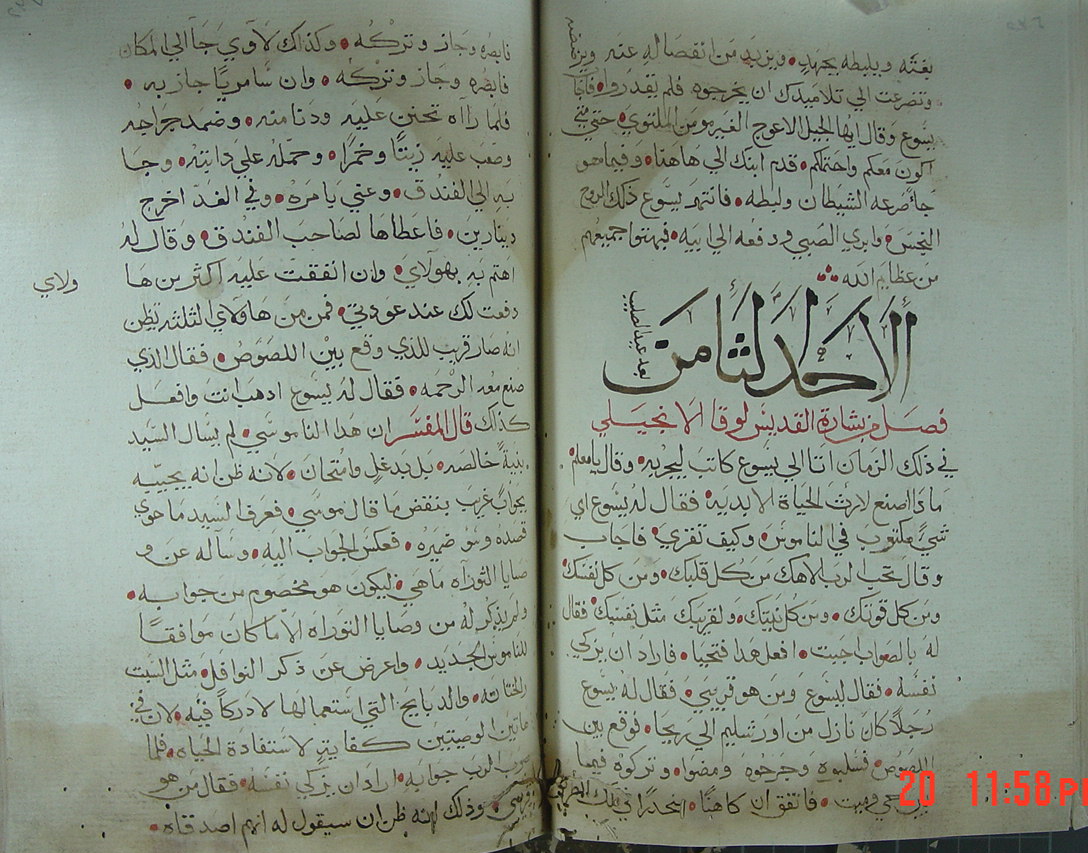 بغتة ويلبطه بجهد ويزبد من انفصاله عنه
وتضرعت الي تلاميذك ان يخرجوه فلم يقدروا فاجا
يسوع وقال ايها الجيل الاعوج الغير مومن الملتوي حتي متي
اكون معكم واحتملكم قدم ابنك الي هاهنا وفيما هو
جا صرعه الشيطان ولبطه فانتهر يسوع ذلك الروح
النجس وابري الصبي ودفعه الي ابيه فبهتوا جميعهم
من عظايم الله
الاحد الثامن
بعد عيد الصليب
فصل من بشارة القديس لوقا الانجيلي
في ذلك الزمان اتا الي يسوع كاتب ليجربه وقال يا معلم
ماذا اصنع لارث الحياة الابدية فقال له يسوع اي
شي مكتوب في الناموس وكيف تقري فاجاب
وقال تحب الرب الاهك من كل قلبك ومن كل نفسك
ومن كل قوتك ومن كل نيتك ولقريبك مثل نفسك فقال
له بالصواب اجبت افعل هذا فتحيا فاراد ان يزكي
نفسه فقال ليسوع ومن هو قريبي فقال له يسوع
رجلا كان نازل من اورشليم الي ريحا فوقع بين
اللصوص فسلبوه وجرحوه ومضوا وتركوه فيما
بين حي وميت فاتفق ان كاهنا انحدرا في تلك الطريق
فابصره وجاز وتركه وكذلك لاوي جا الي المكان
فابصره وجاز وتركه وان سامريا جاز به
فلما رااه تحنن عليه ودنا منه وضمد جراحه
وصب عليه زيتا وخمرا وحمله علي دابته وجا
به الي الفندق وعني بامره وفي الغد اخرج
دينارين فاعطاها لصاحب الفندق وقال له
اهتم به بهولاي وان انفقت عليه اكثر من ها
ولاي
دفعت لك عند عودتي فمن من هاولاي الثلثه تظن
انه صار قريب للذي وقع بين اللصوص فقال الذي
صنع معه الرحمه فقال له يسوع اذهب انت وافعل
كذلك قال المفسر ان هذا الناموسي لم يسال السيد
بنية خالصه بل بدغل وامتحان لانه ظن انه يجيبه
بجواب غريب ينقض ما قال موسي فعرف السيد ما حوي
قصده وسو ضميره فعكس الجواب اليه وساله عن و
صايا التوراه ما هي ليكون هو مخصوم من جوابه
ولم يذكر له من وصايا التوراه الا ما كان موافقا
للناموس الجديد واعرض عن ذكر النوافل مثل السبت
والختانه والدبايح التي استعمالها لا دركا فيه لان في
هاتين الوصيتين كفاية لاستفادة الحياه فلما
صوب الرب جوابه اراد ان يزكي نفسه فقال من هو
قريبي وذلك انه ظن ان سيقول له انهم اصدقاه
20 11:58 P